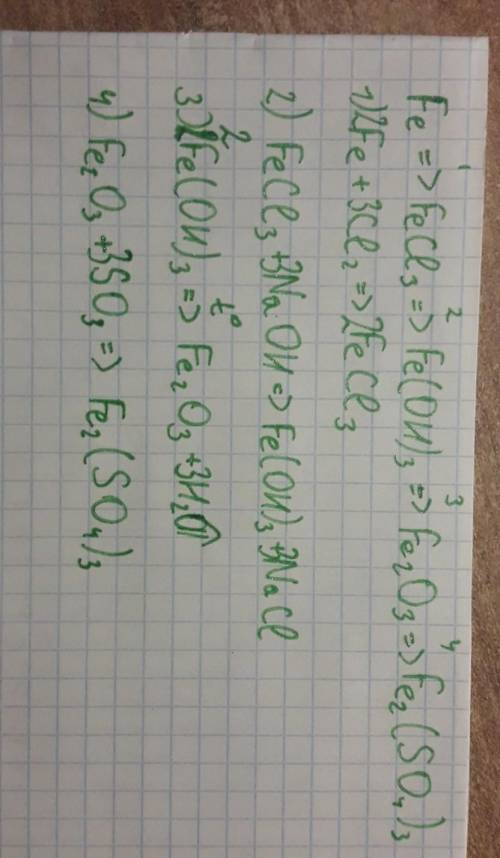 Fe =>¹ FeCl₃ =>² Fe(OH)₃ =>³ Fe₂O₃ =>⁴ Fe₂(SO₄)₃
1) 2Fe + 3Cl₂ => 2FeCl₃
2) FeCl₃ + 3NaOH => Fe(OH)₃ + 3NaCl
3) 2Fe(OH)₃ =>t° Fe₂O₃ + 3H₂O↑
4) Fe₂O₃ + 3SO₃ => Fe₂(SO₄)₃